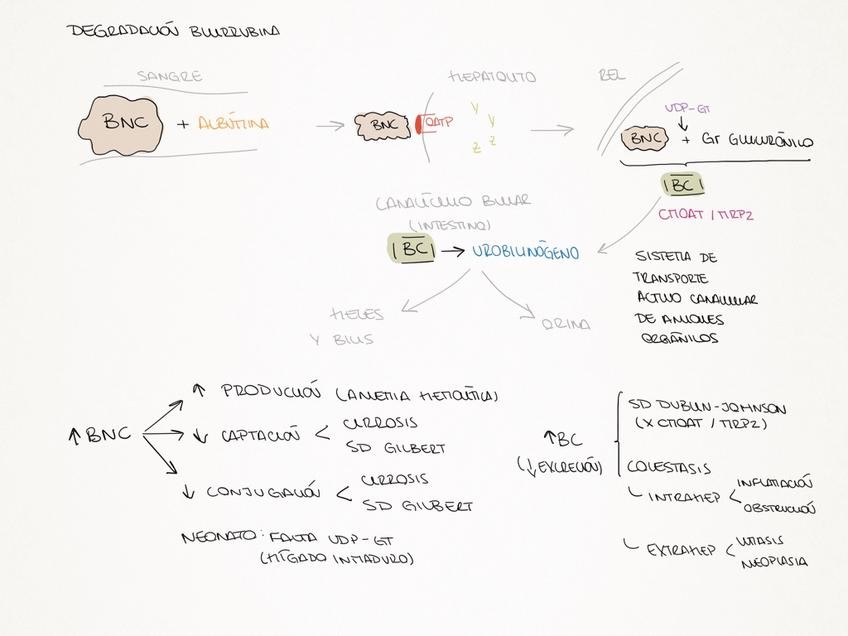 DEGRADACIÓN BILIRRUBINA
SANGRE
BNC + ALBÚMINA
HEPATOCITO
BNC OATP
Y Y Z Z
REL
UDP-GT
BNC + GT GLUCURÓNICO
BC
CMOAT / MRP2
SISTEMA DE
TRANSPORTE
ACTIVO CANALICULAR
DE ANIONES
ORGÁNICOS
CANALÍCULO BILIAR
(INTESTINO)
BC → UROBILINÓGENO
HECES
Y BILIS
ORINA
↑ BNC
↑ PRODUCCIÓN (ANEMIA HEMOLÍTICA)
↓ CAPTACIÓN < CIRROSIS
SD GILBERT
↓ CONJUGACIÓN < CIRROSIS
SD GILBERT
NEONATO: FALTA UDP-GT
(HÍGADO INMADURO)
↑BC
(↓EXCRECIÓN)
SD DUBIN-JOHNSON
(X CMOAT / MRP2)
COLESTASIS
INTRAHEP < INFLAMACIÓN
OBSTRUCCIÓN
EXTRAHEP < LITIASIS
NEOPLASIA